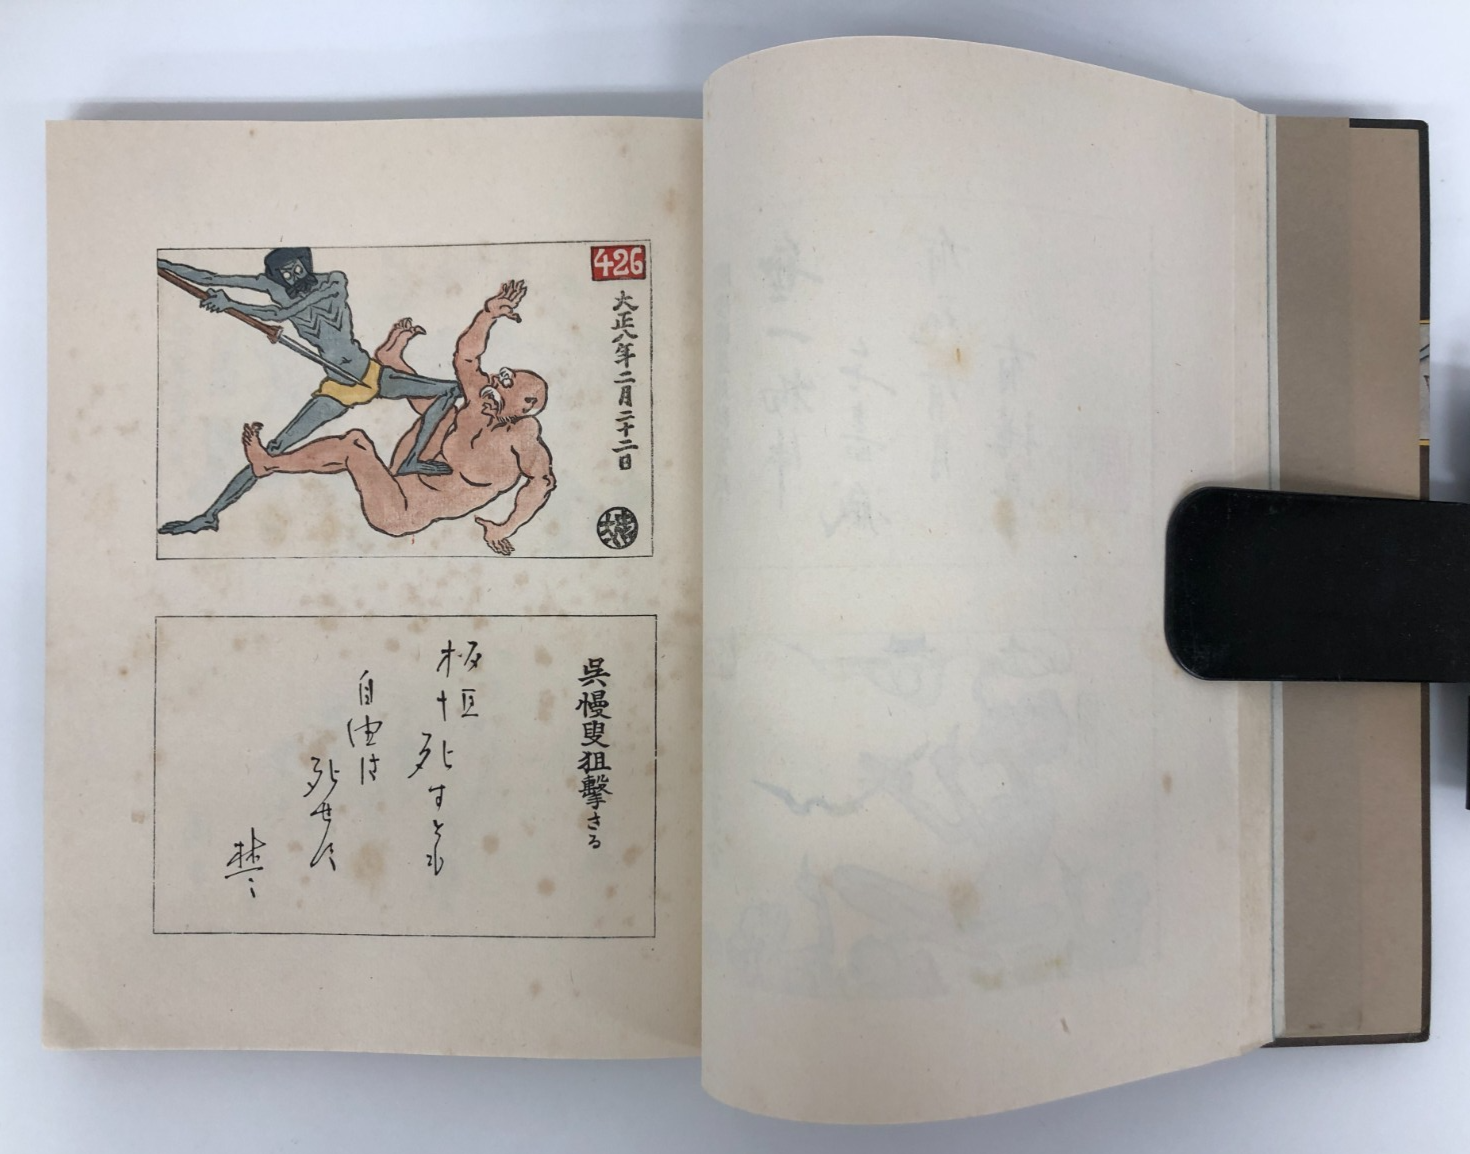 426
大正八年二月二十二日
呉慢叟狙撃さる
板垣死すとも
自由は
死せに